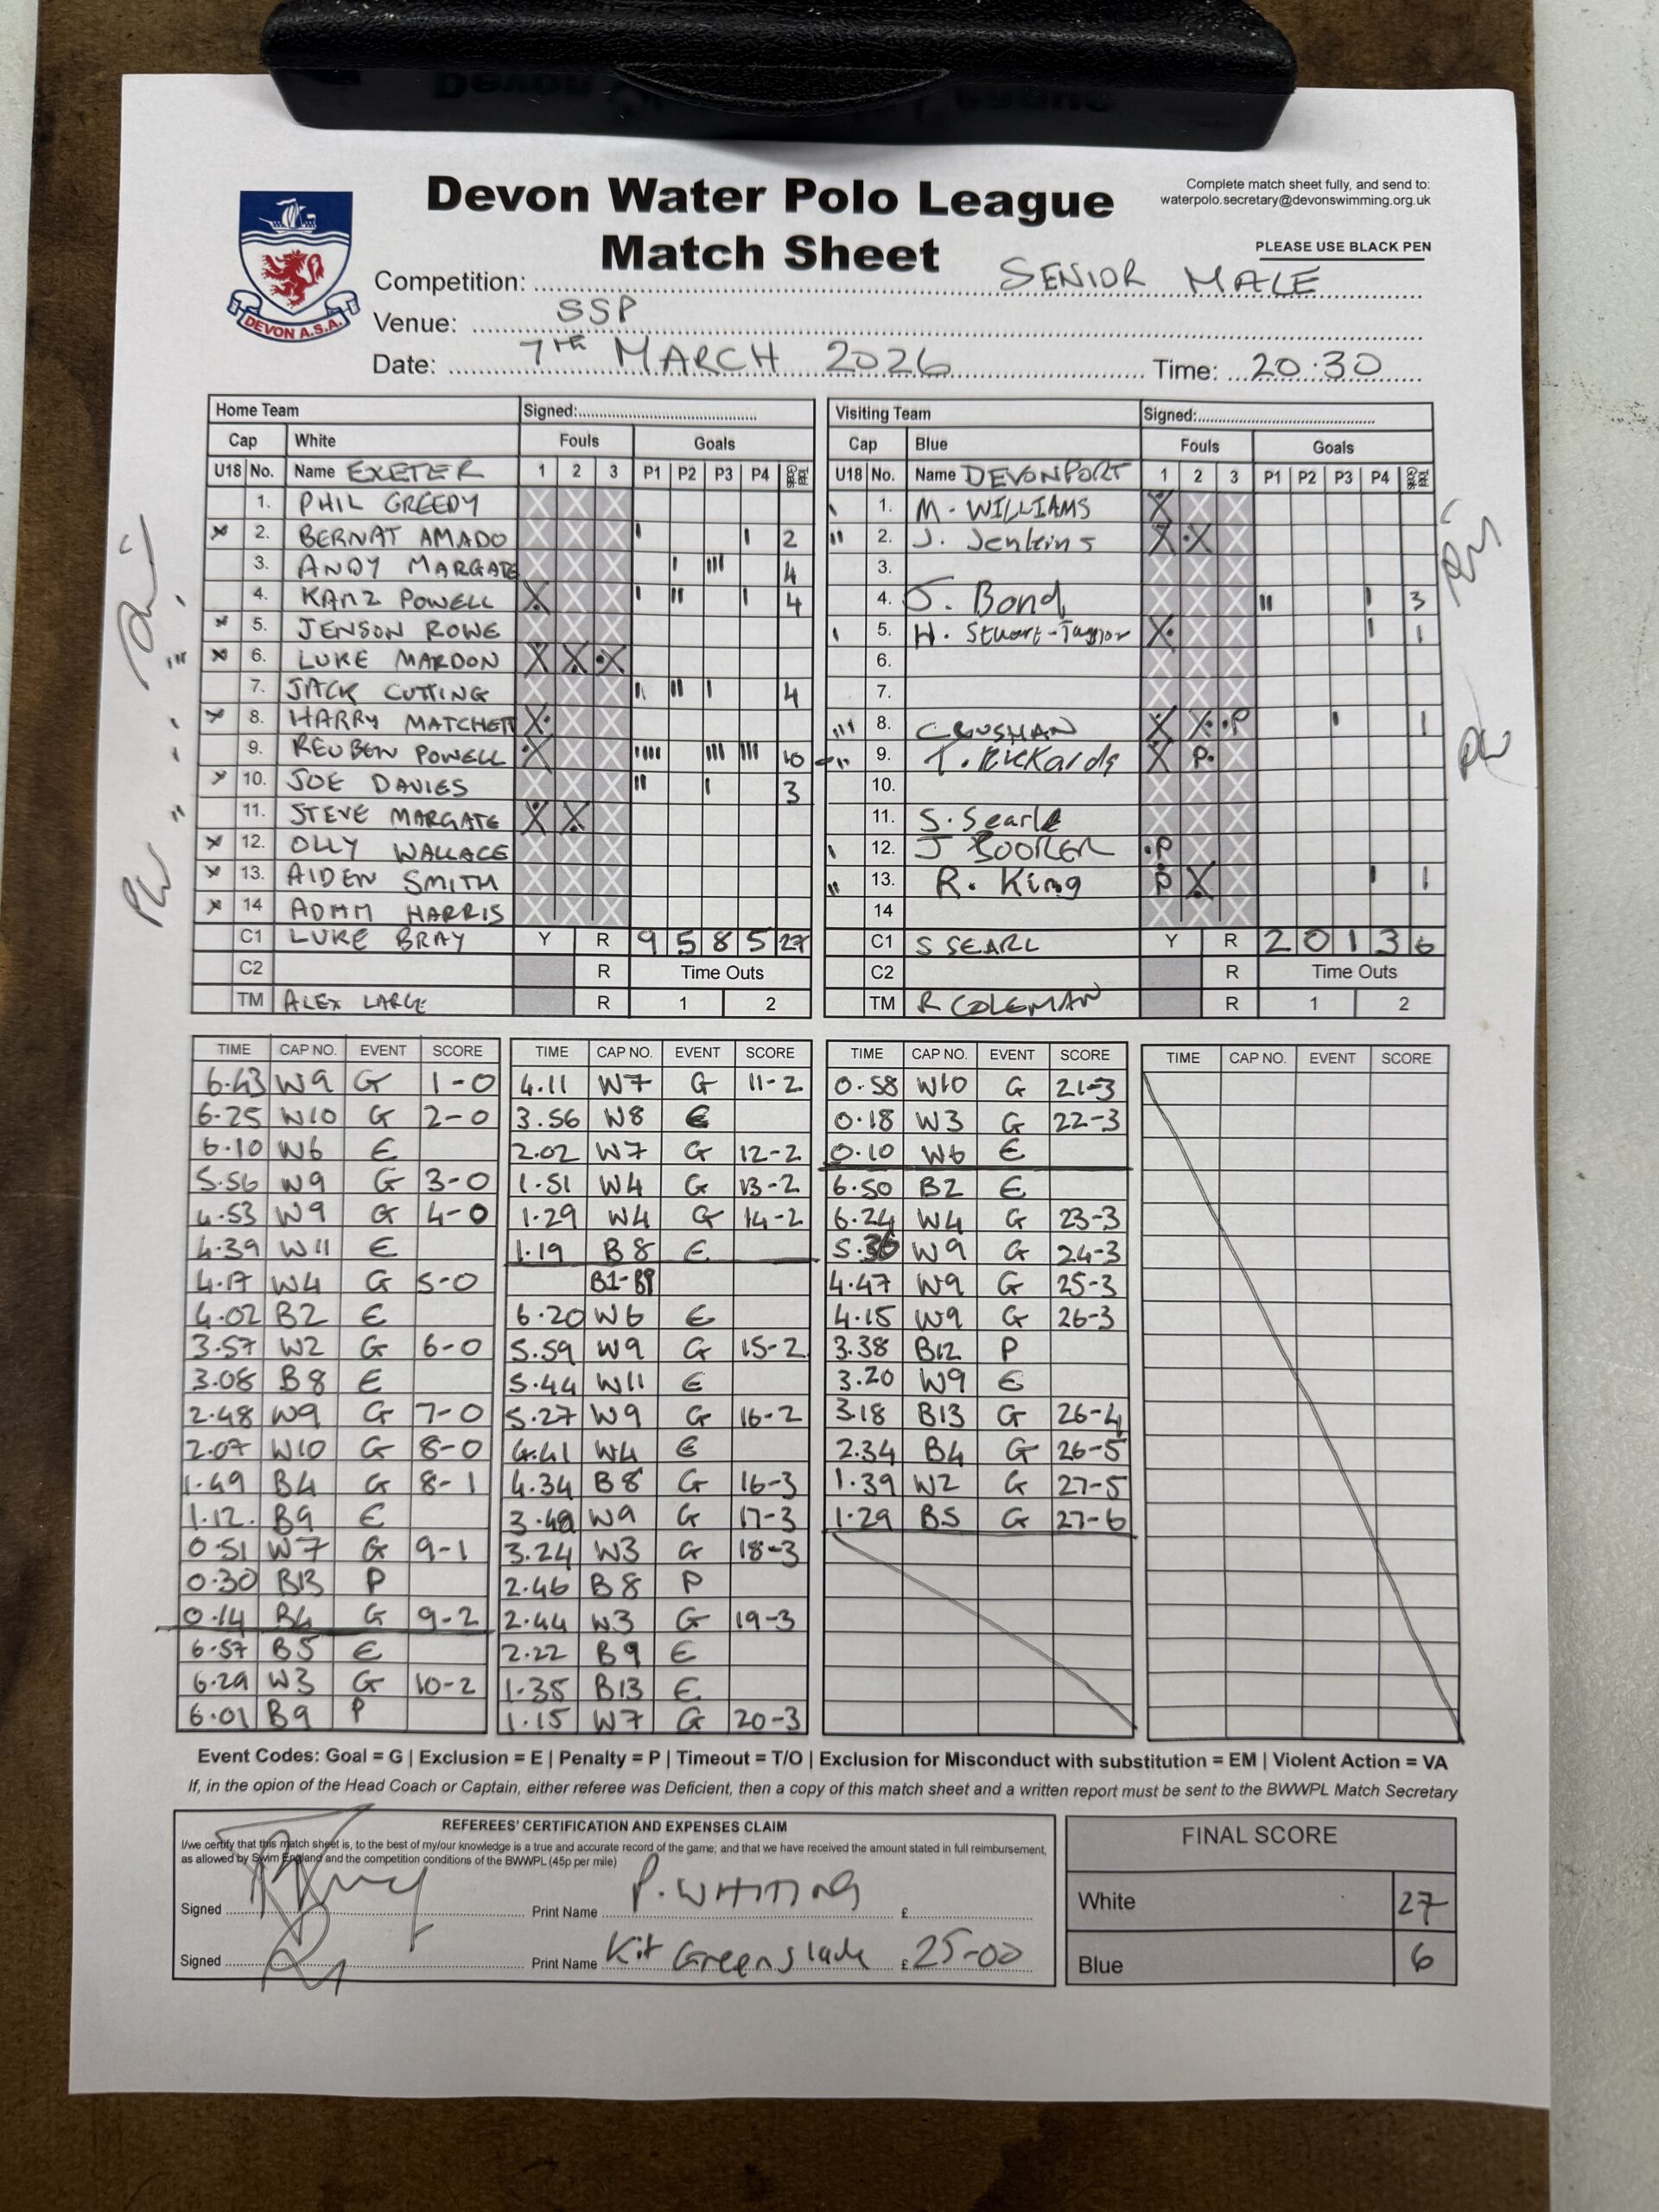 Devon Water Polo League
Match Sheet
Complete match sheet fully, and send to:
waterpolo.secretary@devonswimming.org.uk
PLEASE USE BLACK PEN
DEVON A.S.A.
Competition: SENIOR MALE
Venue: SSP
Date: 7TH MARCH 2026 Time: 20:30
Home Team Signed:
Cap White Fouls Goals
U18 No. Name EXETER 1 2 3 P1 P2 P3 P4 Total Goals
1. PHIL GREEDY
X 2. BERNAT AMADO I I 2
3. ANDY MARGATE I III 4
4. KAMZ POWELL X I II I 4
X 5. JENSON ROWE
X 6. LUKE MARDON X X X
7. JACK CUTTING II II I 4
X 8. HARRY MATCHETT X
9. REUBEN POWELL X IIII III III 10
X 10. JOE DAVIES II I 3
11. STEVE MARGATE X X
X 12. OLLY WALLACE
X 13. AIDEN SMITH
X 14 ADAM HARRIS
C1 LUKE BRAY Y R 9 5 8 5 27
C2 R Time Outs
TM ALEX LARGE R 1 2
Visiting Team Signed:
Cap Blue Fouls Goals
U18 No. Name DEVONPORT 1 2 3 P1 P2 P3 P4 Total Goals
1. M. WILLIAMS X
2. J. Jenkins X X
3.
4. J. Bond II I 3
5. H. Stuart-Taylor X I 1
6.
7.
8. CRUSHAN X X P I 1
9. T. Rickards X P
10.
11. S. Searle
12. J BOOKER P
13. R. King P X I 1
14
C1 S SEARL Y R 2 0 1 3 6
C2 R Time Outs
TM R COLEMAN R 1 2
TIME CAP NO. EVENT SCORE
6.43 W9 G 1-0
6.25 W10 G 2-0
6.10 W6 E
5.56 W9 G 3-0
4.53 W9 G 4-0
4.39 W11 E
4.17 W4 G 5-0
4.02 B2 E
3.57 W2 G 6-0
3.08 B8 E
2.48 W9 G 7-0
2.07 W10 G 8-0
1.49 B4 G 8-1
1.12. B9 E
0.51 W7 G 9-1
0.30 B13 P
0.14 B4 G 9-2
6.57 B5 E
6.29 W3 G 10-2
6.01 B9 P
TIME CAP NO. EVENT SCORE
4.11 W7 G 11-2
3.56 W8 E
2.02 W7 G 12-2
1.51 W4 G 13-2
1.29 W4 G 14-2
1.19 B8 E
B1-B9
6.20 W6 E
5.59 W9 G 15-2
5.44 W11 E
5.27 W9 G 16-2
4.41 W4 E
4.34 B8 G 16-3
3.49 W9 G 17-3
3.24 W3 G 18-3
2.46 B8 P
2.44 W3 G 19-3
2.22 B9 E
1.35 B13 E
1.15 W7 G 20-3
TIME CAP NO. EVENT SCORE
0.58 W10 G 21-3
0.18 W3 G 22-3
0.10 W6 E
6.50 B2 E
6.24 W4 G 23-3
5.36 W9 G 24-3
4.47 W9 G 25-3
4.15 W9 G 26-3
3.38 B12 P
3.20 W9 E
3.18 B13 G 26-4
2.34 B4 G 26-5
1.39 W2 G 27-5
1.29 B5 G 27-6
TIME CAP NO. EVENT SCORE
Event Codes: Goal = G | Exclusion = E | Penalty = P | Timeout = T/O | Exclusion for Misconduct with substitution = EM | Violent Action = VA
If, in the opion of the Head Coach or Captain, either referee was Deficient, then a copy of this match sheet and a written report must be sent to the BWWPL Match Secretary
REFEREES' CERTIFICATION AND EXPENSES CLAIM
I/we certify that this match sheet is, to the best of my/our knowledge is a true and accurate record of the game; and that we have received the amount stated in full reimbursement,
as allowed by Swim England and the competition conditions of the BWWPL (45p per mile)
Signed Print Name P. WHITING £
Signed Print Name Kit Greenslade £ 25-00
FINAL SCORE
White 27
Blue 6